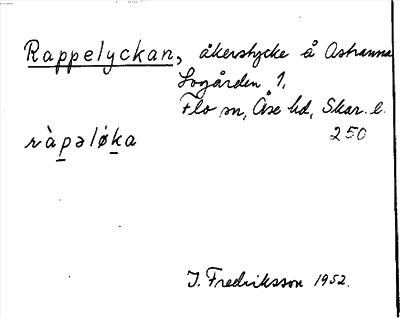 Rappelyckan, åkerstycke å Astranna
Logården 1,
Flo sn, Åse hd, Skar. l.
250
ràpəlǿka
I. Fredriksson 1952.